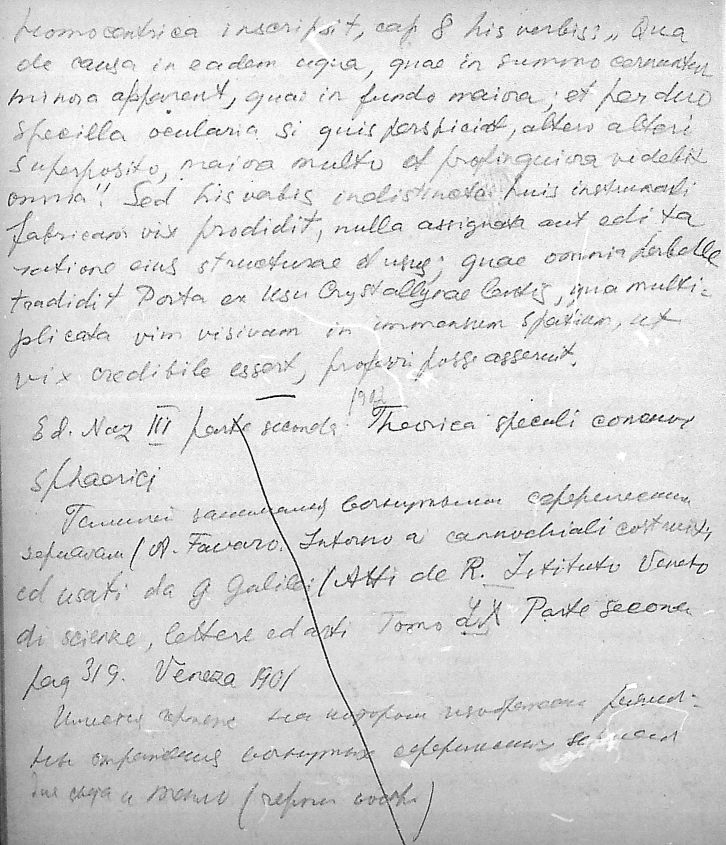 Homocentrica inscripsit, cap 8 his verbis: „Qua
de causa in eadem aqua, quae in summo cernuntur
minora apparent, quae in fundo maiora; et per duo
specilla ocularia si quis perspiciat, altero alteri
superposito, maiora multo et propinquiora videbit
omnia". Sed his verbis indistincta huis instrumenti
fabricam vix prodidit, nulla assignata aut edita
ratione eius structurae et usus; quae omnia perbelle
tradidit Porta ex usu Crystallynae lentis, qua multi-
plicata vim visivam in immensum spatium, ut
vix credibile esset, proferri posse asseruit.
Ed. Naz III parte seconda Theorica speculi concavi
sphaerici
Галилей занимался вогнутыми сферическими
зеркалами (A. Favaro. Intorno ai cannochiali costruiti
ed usati da G Galilei (Atti de R. Istituto Veneto
di scienze, lettere ed arti Tomo LX Parte seconda
pag 319. Venezia 1901
на котором изображен
вогнутых сферических зеркал